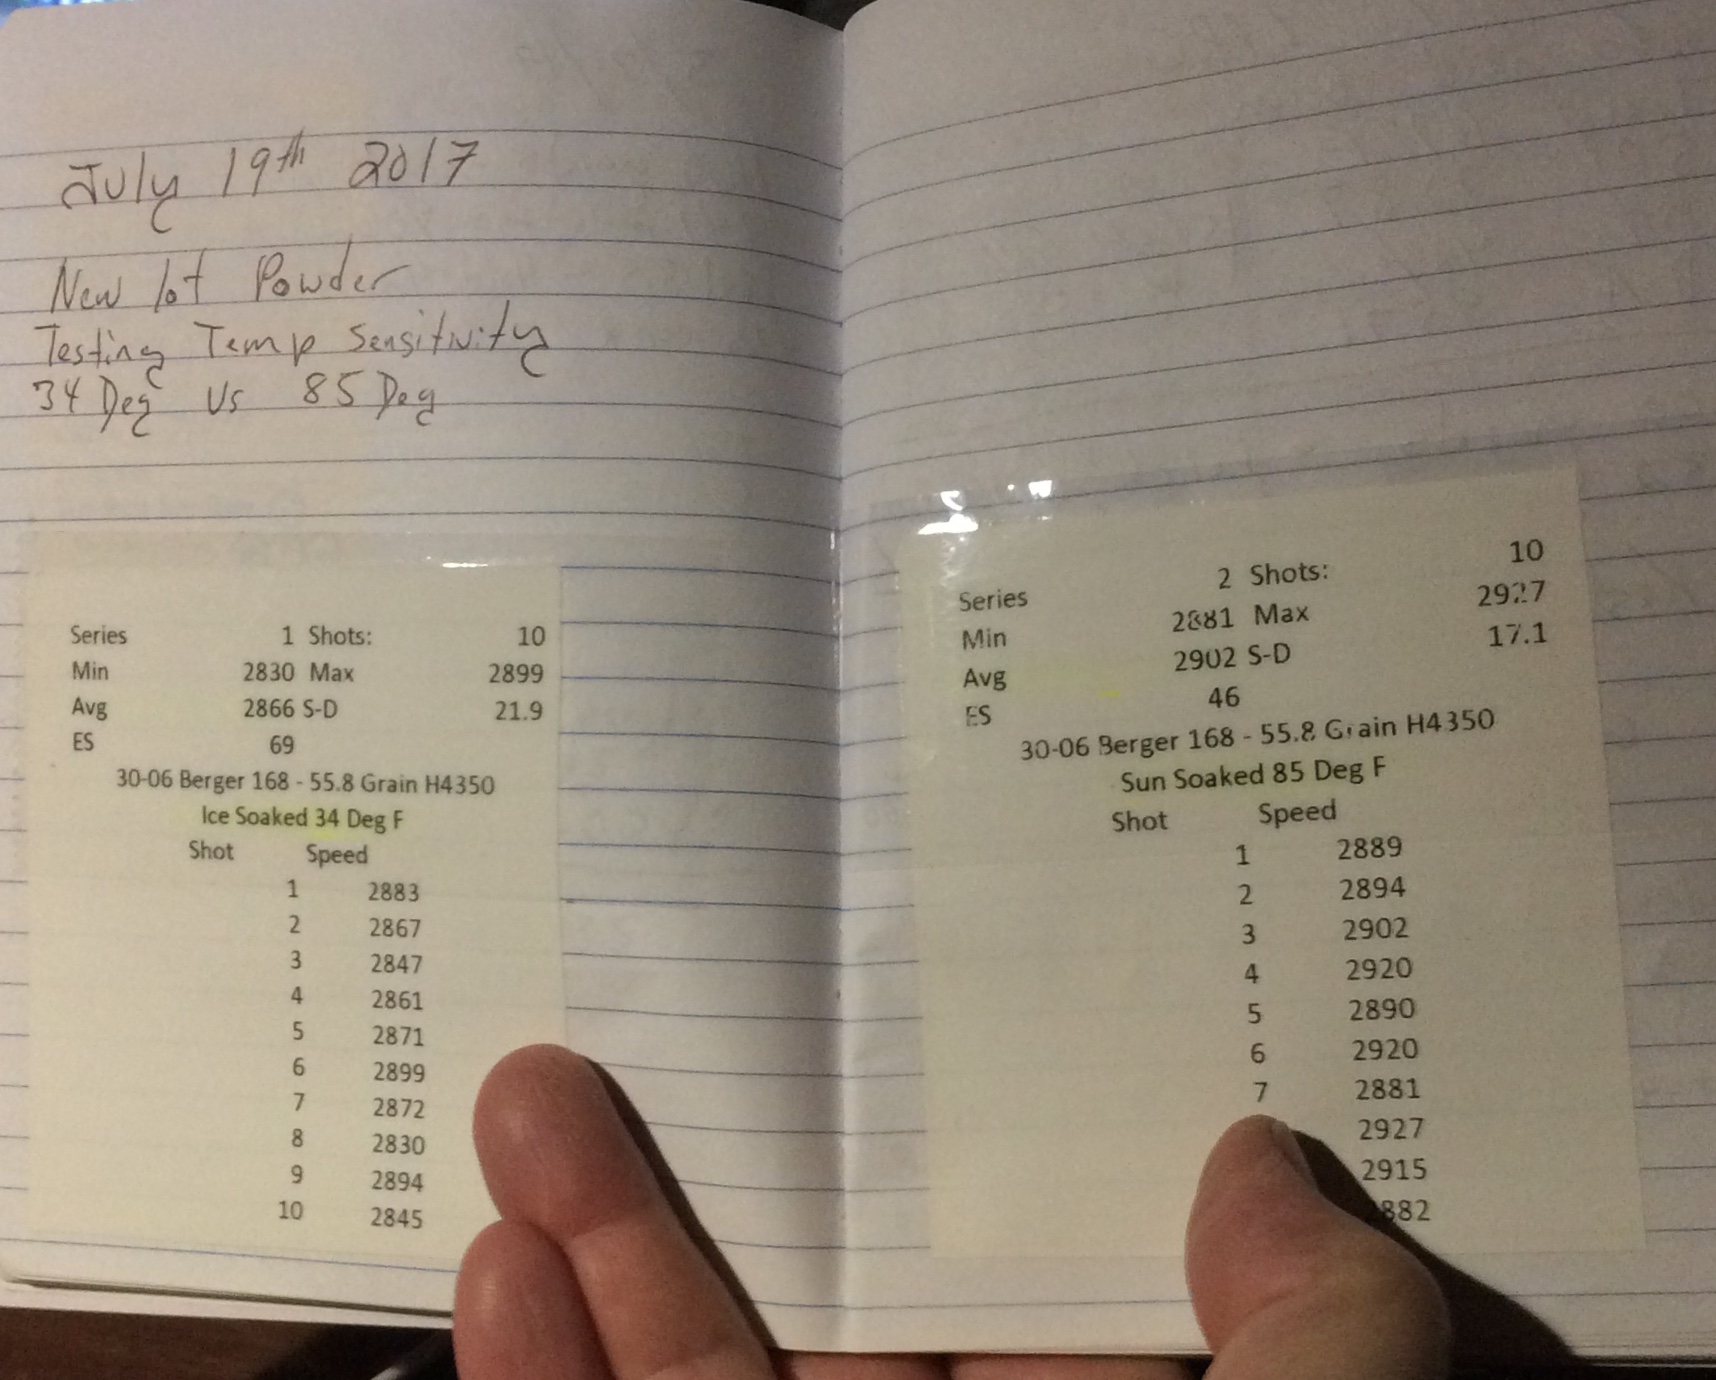 July 19th 2017
New lot Powder
Testing Temp Sensitivity
34 Deg Vs 85 Deg
Series 1 Shots: 10
Min 2830 Max 2899
Avg 2866 S-D 21.9
ES 69
30-06 Berger 168 - 55.8 Grain H4350
Ice Soaked 34 Deg F
Shot Speed
1 2883
2 2867
3 2847
4 2861
5 2871
6 2899
7 2872
8 2830
9 2894
10 2845
Series 2 Shots: 10
Min 2881 Max 2927
Avg 2902 S-D 17.1
ES 46
30-06 Berger 168 - 55.8 Grain H4350
Sun Soaked 85 Deg F
Shot Speed
1 2889
2 2894
3 2902
4 2920
5 2890
6 2920
7 2881
2927
2915
882